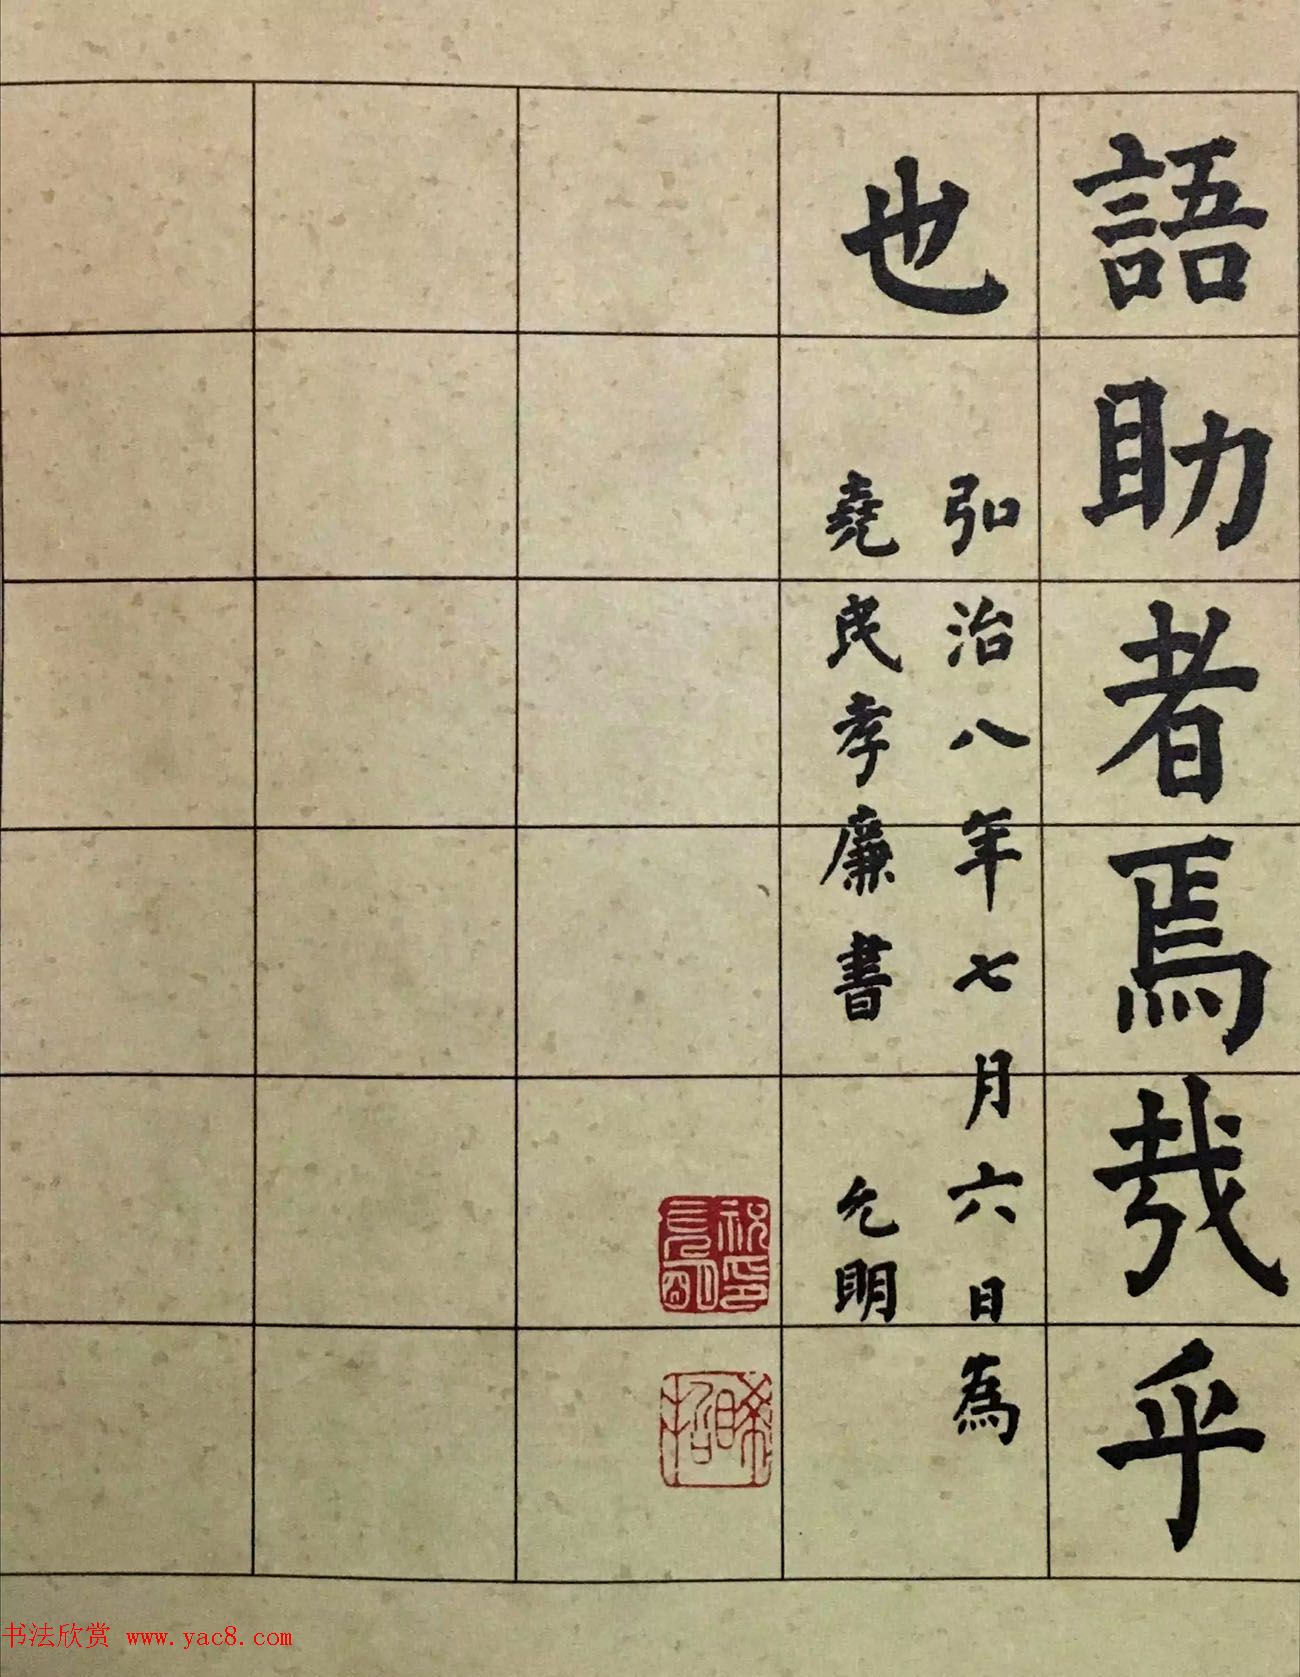 語助者焉哉乎
也
弘治八年七月六日為
堯民孝廉書 允明
晞哲
书法欣赏 www.yac8.com